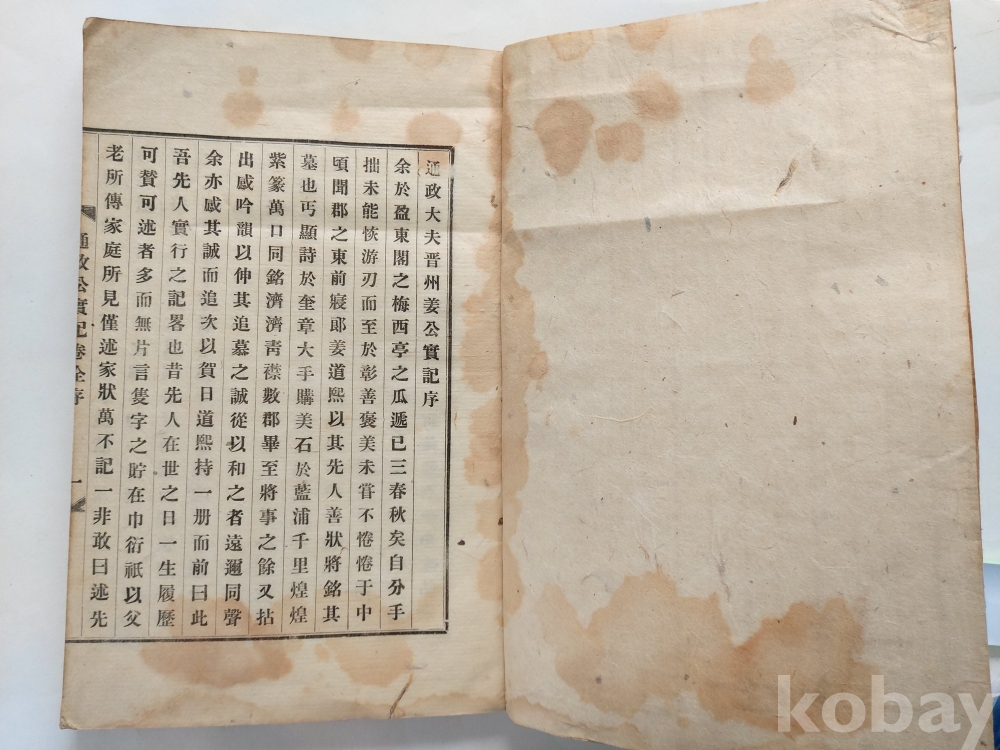 通政大夫晋州姜公實記序
余於盈東閣之梅西亭之瓜遞已三春秋矣自分手
拙未能恢游刃而至於彰善褒美未嘗不惓惓于中
頃聞郡之東前寢郞姜道熙以其先人善狀將銘其
墓也丐顯詩於奎章大手購美石於藍浦千里煌煌
紫篆萬口同銘濟濟靑襟數郡畢至將事之餘又拈
出感吟韻以伸其追慕之誠從以和之者遠邇同聲
余亦感其誠而追次以賀日道熙持一册而前曰此
吾先人實行之記畧也昔先人在世之日一生履歷
可賛可述者多而無片言隻字之貯在巾衍祇以父
老所傳家庭所見僅述家狀萬不記一非敢曰述先
通政公實記卷全序
一
kobay